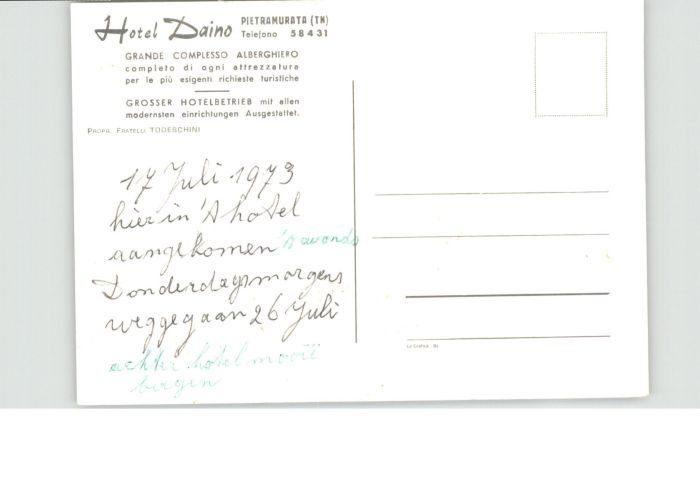 Hotel Daino PIETRAMURATA (TN)
Telefono 58431
GRANDE COMPLESSO ALBERGHIERO
completo di ogni attrezzatura
per le più esigenti richieste turistiche
GROSSER HOTELBETRIEB mit allen
modernsten einrichtungen Ausgestattet.
PROPR. FRATELLI TODESCHINI
17 Juli 1973
hier in 't hotel
aangekomen 's avonds
Donderdagsmorgens
weggegaan 26 Juli
achter hotel mooië
bergen